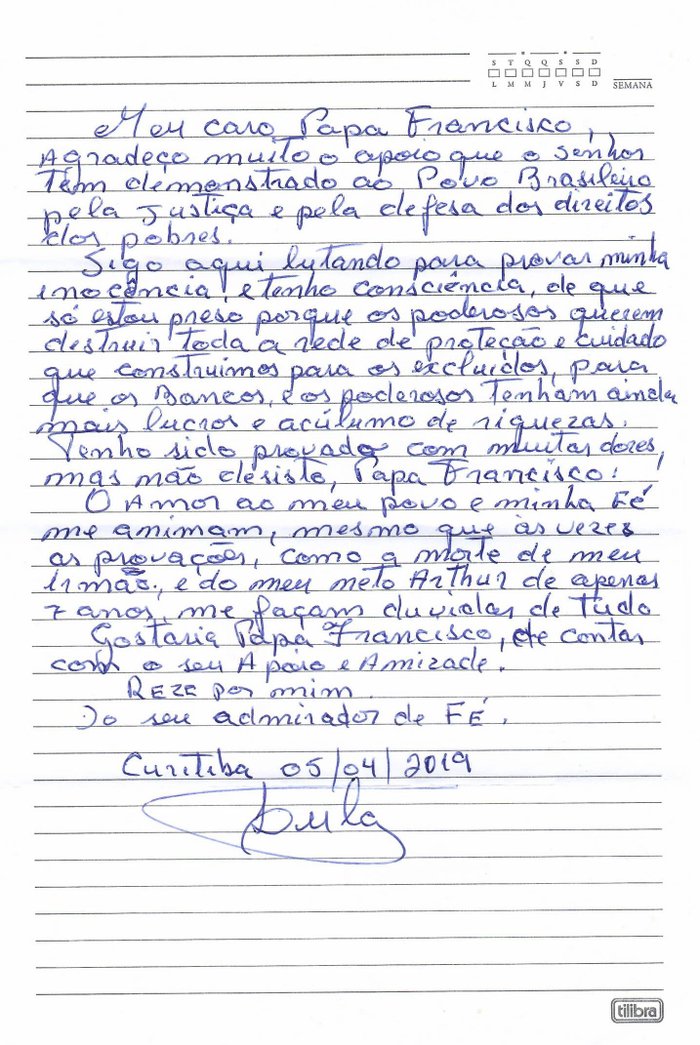 S T Q Q S S D
L M M J V S D
SEMANA
Meu caro Papa Francisco,
Agradeço muito o apoio que o senhor
tem demonstrado ao Povo Brasileiro
pela justiça e pela defesa dos direitos
dos pobres.
Sigo aqui lutando para provar minha
inocência, e tenho consciência, de que
só estou preso porque os poderosos querem
destruir toda a rede de proteção e cuidado
que construimos para os excluidos, para
que os Bancos, e os poderosos tenham ainda
mais lucros e acúlumo de riquezas.
Tenho sido provado com muitas dores,
mas não desisto, Papa Francisco!
O Amor ao meu povo e minha Fé
me animam, mesmo que às vezes
as provações, como a morte de meu
irmão, e do meu neto Arthur de apenas
7 anos, me façam duvidar de tudo
Gostaria Papa Francisco, de contar
com o seu Apoio e Amizade.
REZE por mim.
Do seu admirador de FÉ.
Curitiba 05/04/2019
Lula
tilibra